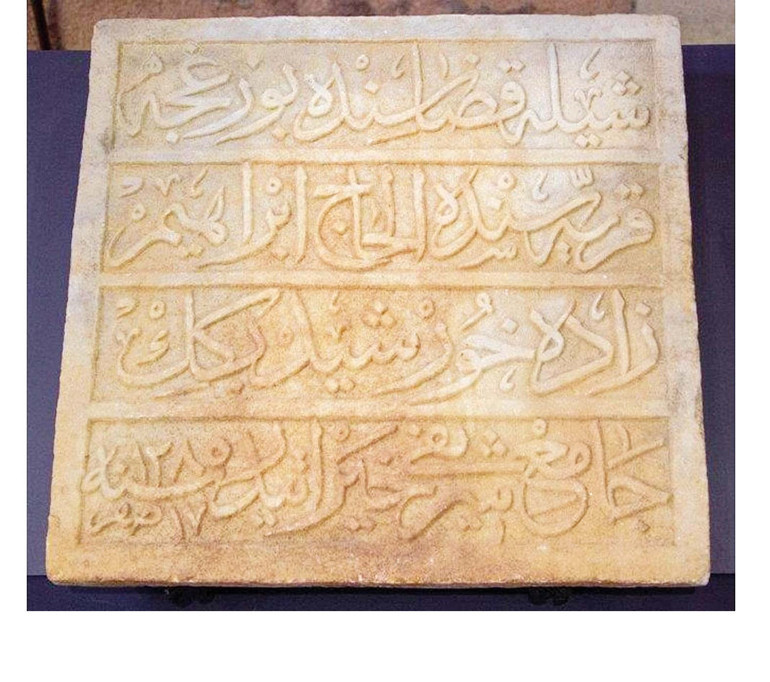 شيله قضاسنده بورغجه
قريه سنده الحاج ابراهيم
زاده خورشيد بكك
جامع شريفى خيراتيدر سنه ١٢٨٥
١٧ صفر